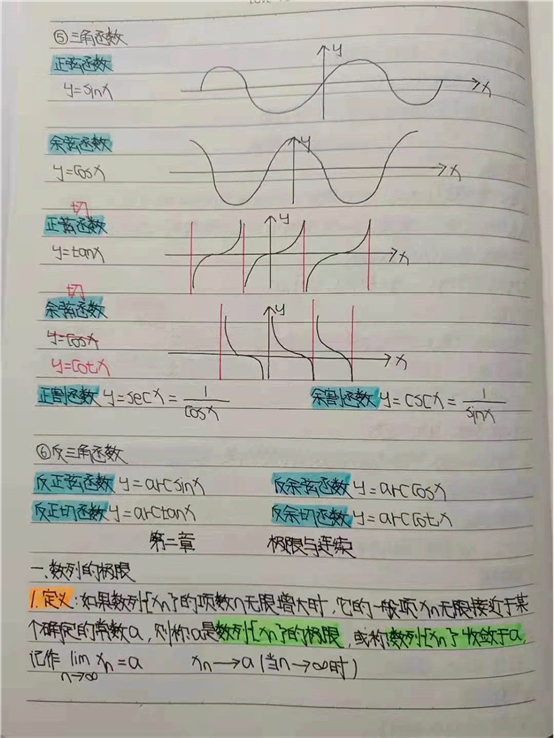 ⑤三角函数
正弦函数
y=sinx
y
x
余弦函数
y=cosx
y
x
切
正弦函数
y=tanx
y
x
切
余弦函数
y=cosx
y=cotx
y
x
正割函数 y=secx=1/cosx 余割函数 y=cscx=1/sinx
⑥反三角函数
反正弦函数 y=arcsinx 反余弦函数 y=arccosx
反正切函数 y=arctanx 反余切函数 y=arccotx
第二章 极限与连续
一.数列的极限
1.定义:如果数列{xn}的项数n无限增大时,它的一般项xn无限接近于某
个确定的常数a,则称a是数列{xn}的极限,或称数列{xn}收敛于a,
记作 lim xn=a xn→a(当n→∞时)
n→∞